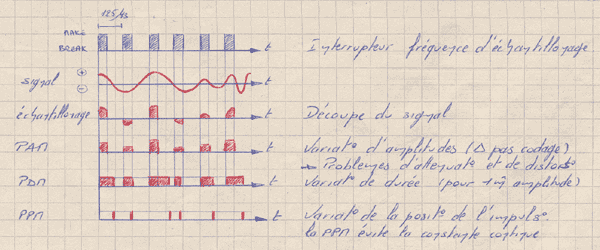 125 µs
MAKE
BREAK
t
Interrupteur fréquence d'échantillonage
signal
+
−
t
échantillonage
t
Découpe du signal
PAM
t
Variat° d'amplitudes (Δ pas codage)
→ Problèmes d'atténuat° et de distors°
PDM
t
Variat° de durée (pour 1 m̂ amplitude)
PPM
t
Variat° de la posit° de l'impuls°.
la PPM évite la constante continue